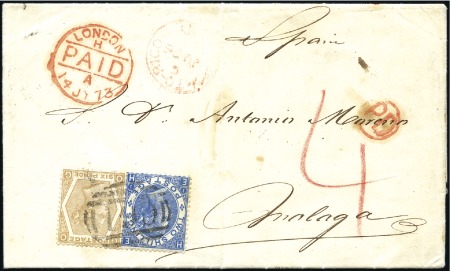 LONDON
H
PAID
A
14 JY 73
Spain
S. Dn. Antonio Moreno
PD
4
Malaga
SIX PENCE
POSTAGE
POSTAGE
H E
E H